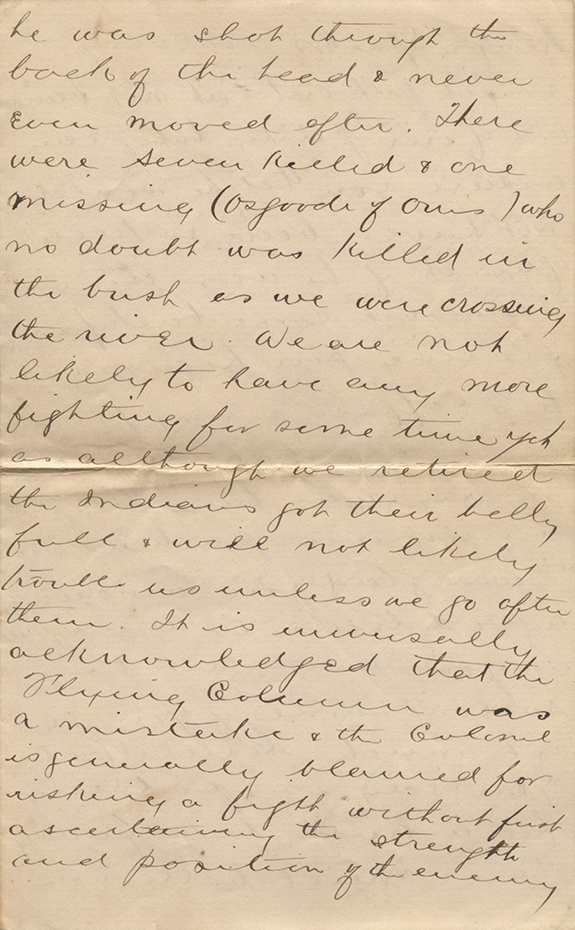 he was shot through the
back of the head & never
even moved after. There
were seven killed & one
missing (Osgoode of Ours) who
no doubt was killed in
the bush as we were crossing
the river. We are not
likely to have any more
fighting for some time yet
as although we retired
the Indians got their belly
full & will not likely
trouble us unless we go after
them. It is universally
acknowledged that the
Flying Column was
a mistake & the Colonel
is generally blamed for
risking a figth without first
ascertaining the strength
and position of the enemy